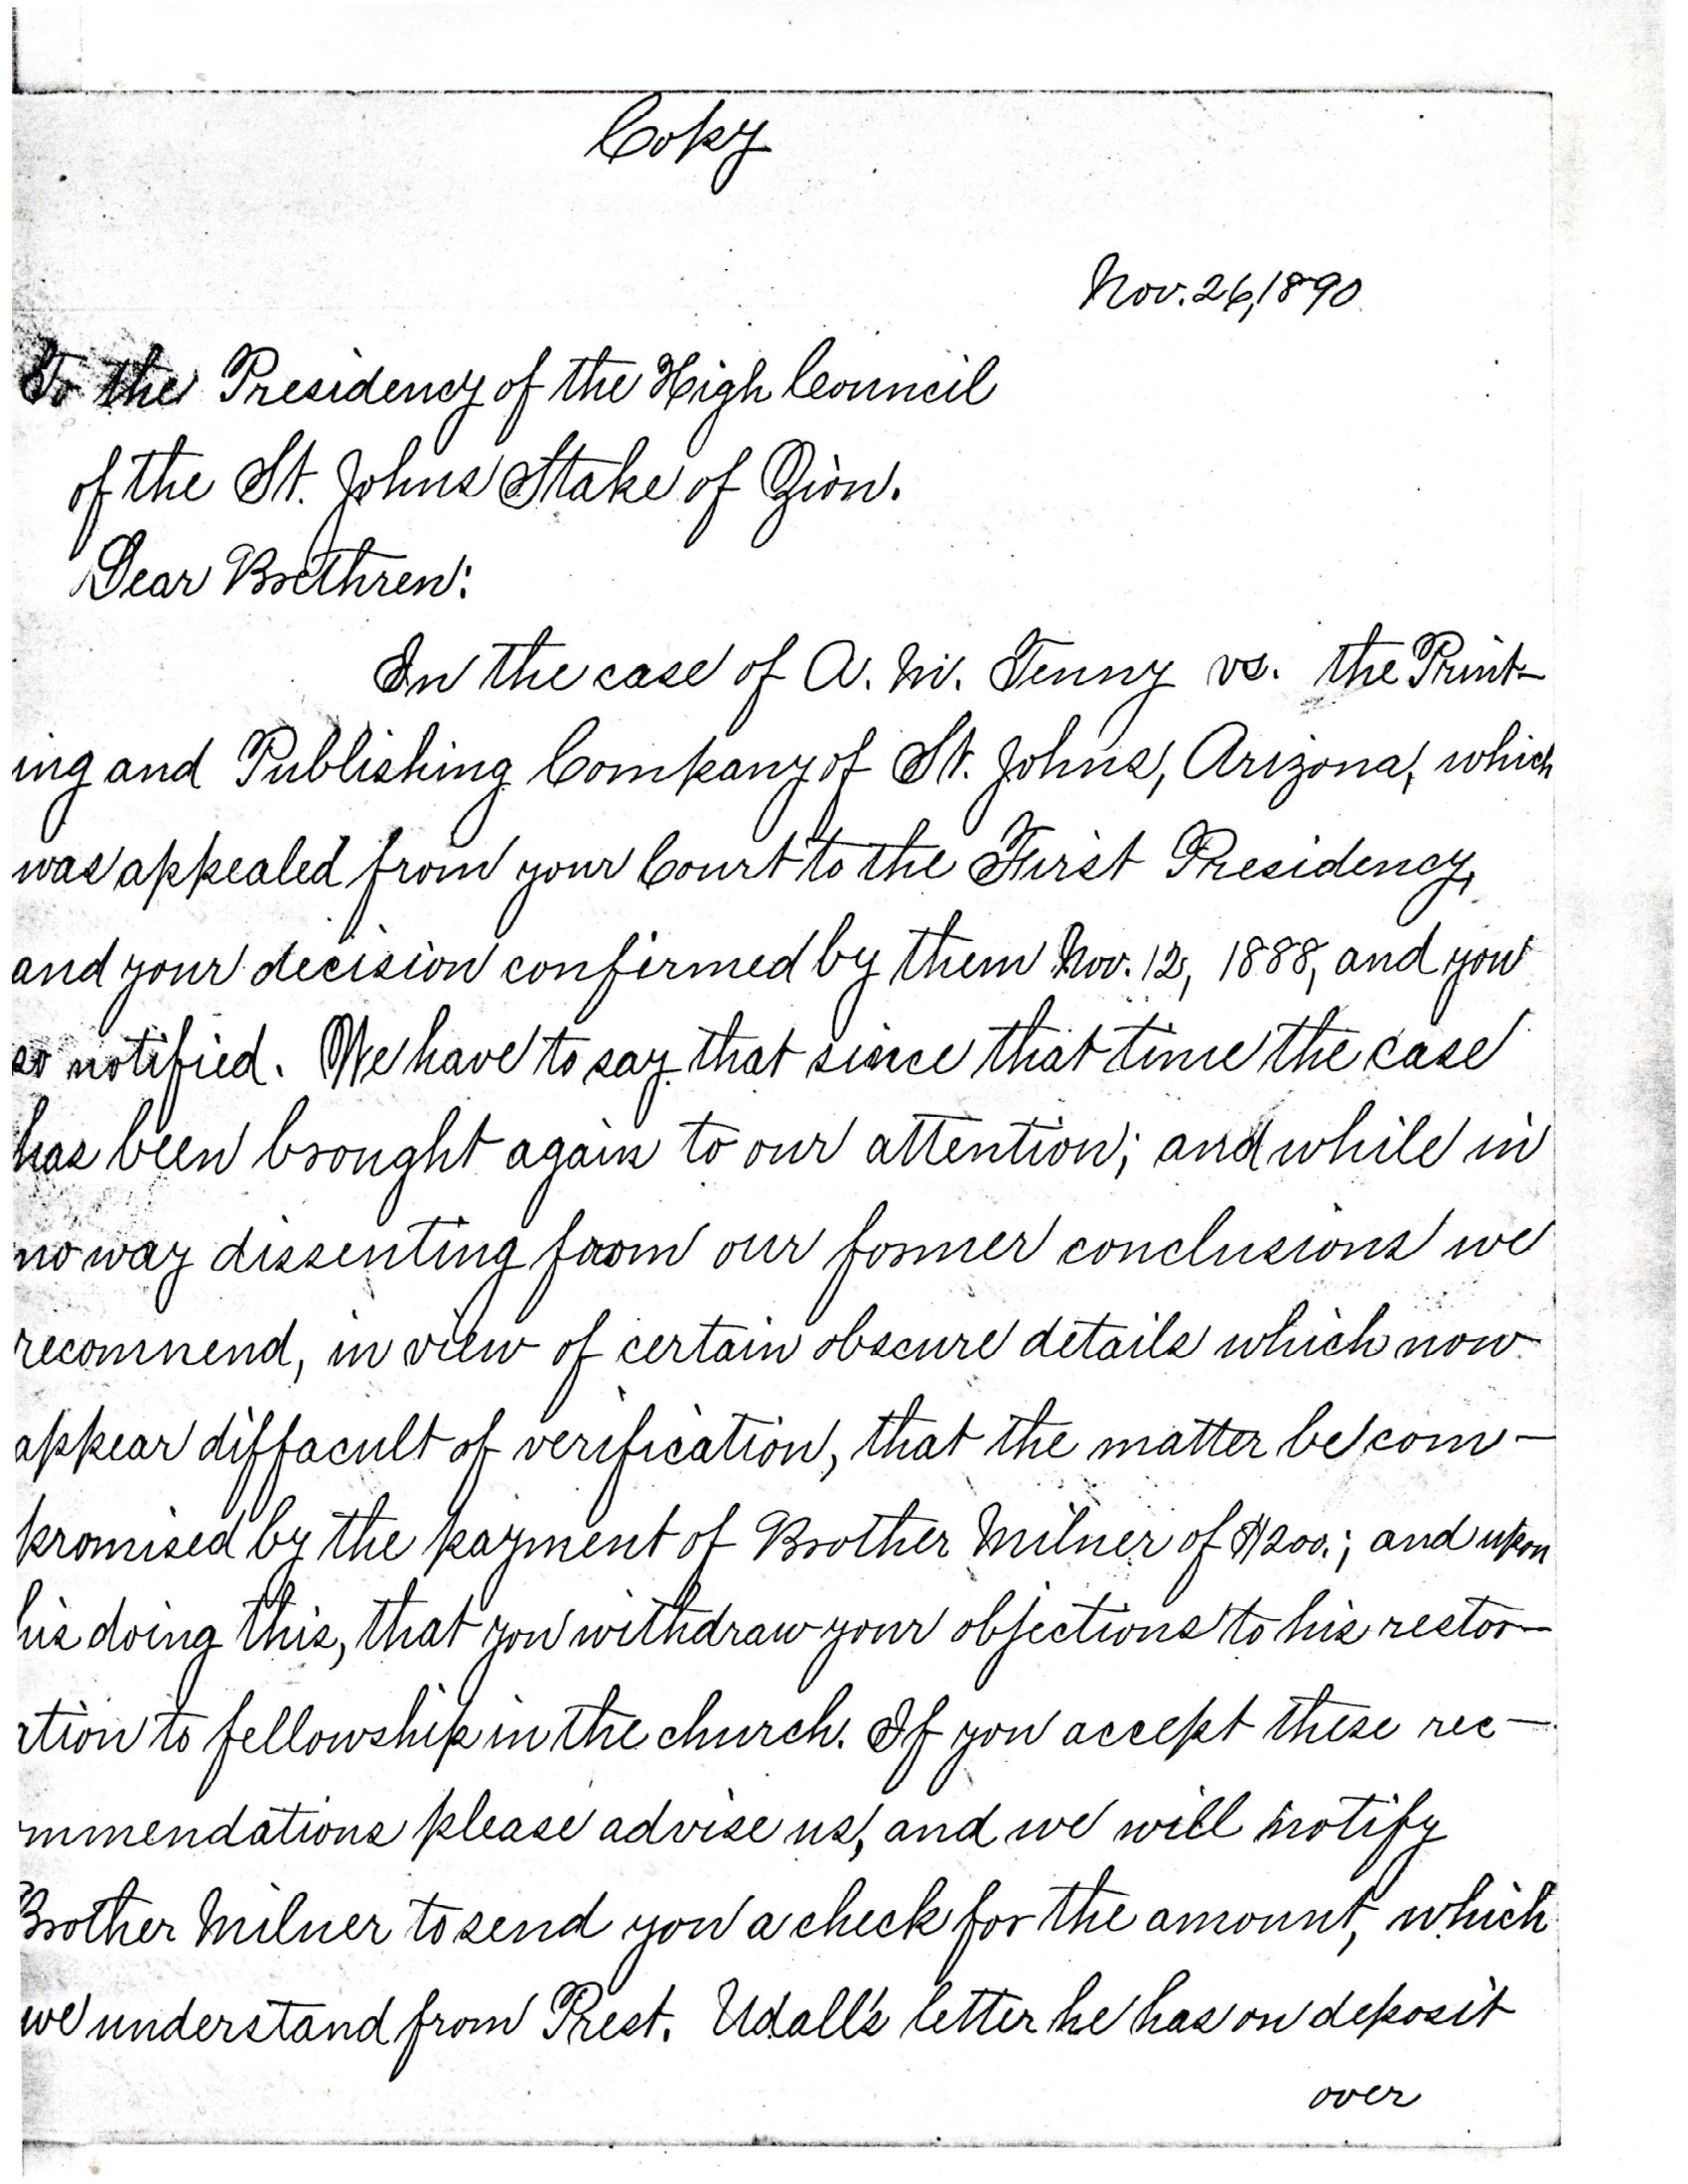 Copy
Nov. 26, 1890
To the Presidency of the High Council
of the St. Johns Stake of Zion.
Dear Brethren:
In the case of A. M. Tenny vs. the Print-
ing and Publishing Company of St. Johns, Arizona, which
was appealed from your Court to the First Presidency,
and your decision confirmed by them Nov. 12, 1888, and you
so notified. We have to say that since that time the case
has been brought again to our attention; and while in
no way dissenting from our former conclusions we
recomnend, in view of certain obscure details which now
appear diffacult of verification, that the matter be com-
promised by the payment of Brother Milner of $1200.; and upon
his doing this, that you withdraw your objections to his restor-
ation to fellowship in the church. If you accept these rec-
ommendations please advise us, and we will notify
Brother Milner to send you a check for the amount, which
we understand from Prest. Udall's letter he has on deposit
over